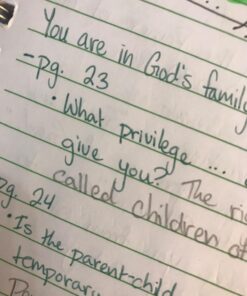 You are in God's family
-pg. 23
• What privilege ...
give you? The ri
called children of
pg. 24
• Is the parent-child
temporar